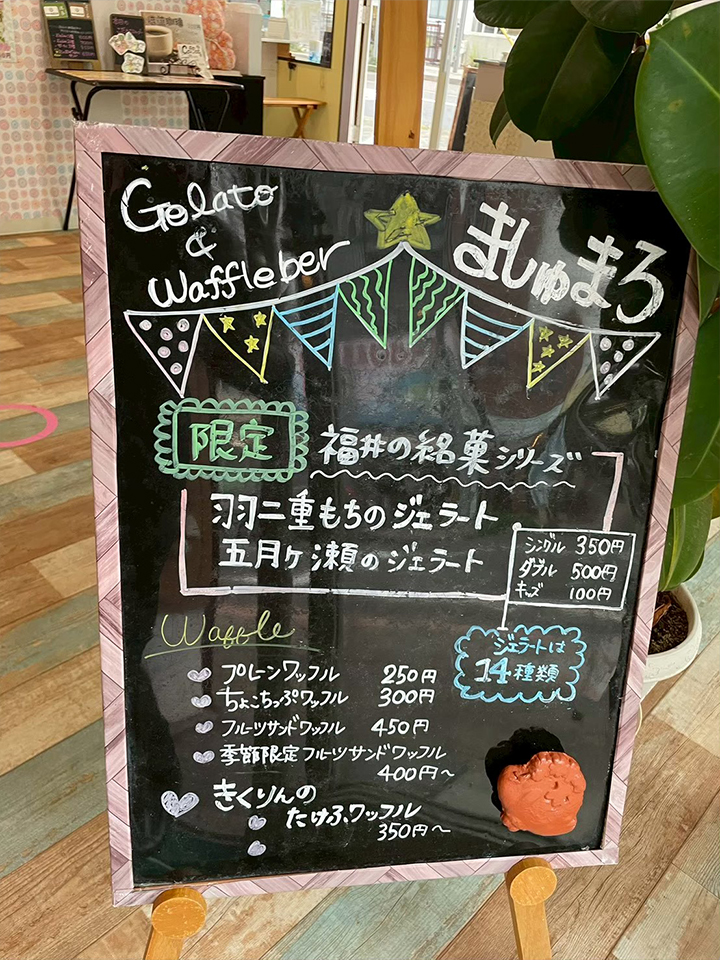 Gelato
&
Waffle ber
ましゅまろ
限定
福井の銘菓シリーズ
羽二重もちのジェラート
五月ヶ瀬のジェラート
シングル 350円
ダブル 500円
キッズ 100円
ジェラートは
14種類
Waffle
プレーンワッフル 250円
ちょこちっぷワッフル 300円
フルーツサンドワッフル 450円
季節限定フルーツサンドワッフル
400円~
きくりんの
たけふワッフル
350円~